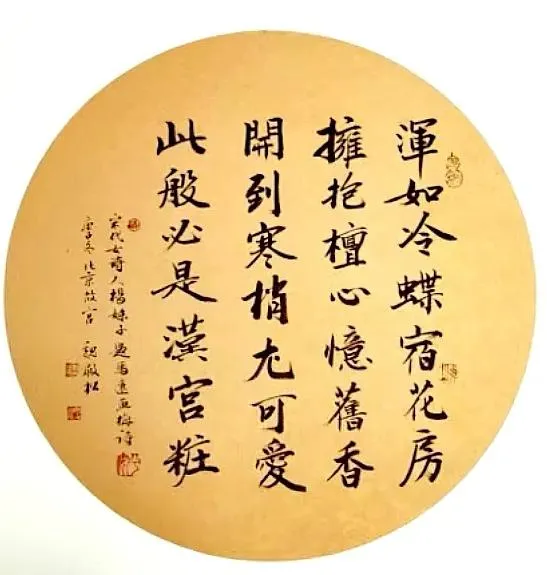 渾如冷蝶宿花房
擁抱檀心憶舊香
開到寒梢尤可愛
此般必是漢宮粧
宋代女詩人楊妹子題馬逵畫梅詩
庚子冬北京故宮 魏敬松